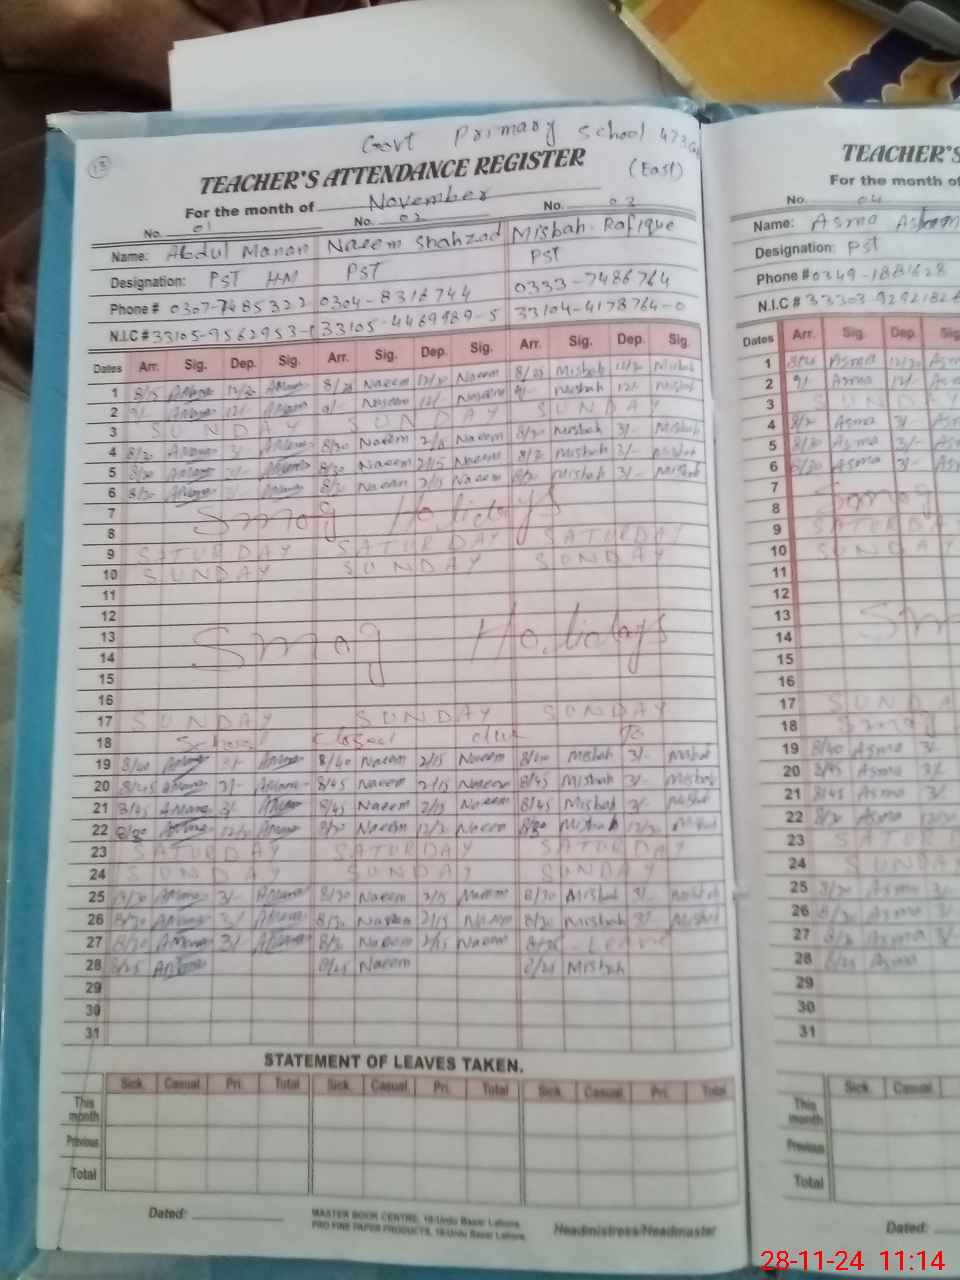 13
Govt Primary School 473 GB
(East)
TEACHER'S ATTENDANCE REGISTER
For the month of November
No. 01 No. 02 No. 03
Name: Abdul Manan Naeem Shahzad Misbah Rafique
Designation: PST HM PST PST
Phone # 0307-7485322 0304-8316744 0333-7486764
N.I.C # 33105-9562953- 33105-4469989-5 33104-4178764-0
Dates Arr. Sig. Dep. Sig. Arr. Sig. Dep. Sig. Arr. Sig. Dep. Sig.
1 Naeem Naeem Misbah Misbah
2 9/- 12/- Naeem 12/- Naeem 9/- Misbah 12/- Misbah
3 SUNDAY SUNDAY SUNDAY
4 8/30 8/30 Naeem 2/15 Naeem 8/30 Misbah 3/- Misbah
5 8/30 8/30 Naeem 2/15 Naeem Misbah 3/- Misbah
6 8/30 Naeem 2/15 Naeem 8/30 Misbah 3/- Misbah
7
Smog Holidays
8
9 SATURDAY SATURDAY SATURDAY
10 SUNDAY SUNDAY SUNDAY
11
12
13
Smog Holidays
14
15
16
17 SUNDAY SUNDAY SUNDAY
18 School Closed due to
19 8/40 8/40 Naeem 2/15 Naeem 8/40 Misbah 3/- Misbah
20 8/45 3/- 8/45 Naeem 2/15 Naeem 8/45 Misbah 3/- Misbah
21 8/45 3/- 8/45 Naeem 2/15 Naeem 8/45 Misbah 3/- Misbah
22 8/30 8/30 Naeem Naeem 8/30 Misbah Misbah
23 SATURDAY SATURDAY SATURDAY
24 SUNDAY SUNDAY SUNDAY
25 8/30 3/- 8/30 Naeem 2/15 Naeem 8/30 Misbah 3/- Misbah
26 8/30 3/- 8/30 Naeem 2/15 Naeem 8/30 Misbah 3/- Misbah
27 8/30 3/- Naeem 2/15 Naeem Leave
28 8/25 8/25 Naeem 8/25 Misbah
29
30
31
STATEMENT OF LEAVES TAKEN.
Sick. Casual. Pri. Total Sick. Casual. Pri. Total Sick. Casual. Pri. Total
This month
Previous
Total
Dated:
MASTER BOOK CENTRE, 18-Urdu Bazar Lahore.
PRO FINE PAPER PRODUCTS, 18-Urdu Bazar Lahore.
Headmistress/Headmaster
TEACHER'S
For the month of
No. 04
Name: Asma
Designation: PST
Phone # 0349-1881628
N.I.C # 33303-9292182
Dates Arr. Sig. Dep.
1 Asma
2 9/- Asma 12/-
3 SUNDAY
4 8/30 Asma 3/-
5 8/30 Asma 3/-
6 8/30 Asma 3/-
7
8 Smog
9 SATURDAY
10 SUNDAY
11
12
13
14
15
16
17 SUNDAY
18 Smog
19 8/40 Asma 3/-
20 8/45 Asma 3/-
21 8/45 Asma 3/-
22 Asma
23
24
25 8/30 Asma 3/-
26 8/30 Asma 3/-
27 Asma 3/-
28 8/25 Asma
29
30
31
Sick. Casual.
This month
Previous
Total
Dated:
28-11-24 11:14